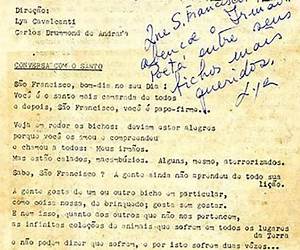 Direção:
Lya Cavalcanti
Carlos Drummond de Andrade
Que S. Francisco
abençoe o Irmão
Poeta entre seus
bichos mais
queridos.
Lya
CONVERSA COM O SANTO
São Francisco, bom-dia no seu Dia!
Você é o santo mais camarada de todos
e depois, São Francisco, você é papo-firme...
Veja em redor os bichos: deviam estar alegres
porque você os amou e compreendeu
e chamou a todos: Meus irmãos.
Mas estão calados, macambúzios. Alguns, mesmo, aterrorizados.
Sabe, São Francisco? A gente ainda não aprendeu de todo sua
lição.
A gente gosta de um ou outro bicho em particular,
como coisa nossa, de brinquedo; gosta sem gostar.
E nem isso, quanto dos outros que não nos pertencem,
as infinitas coleções de animais que sofrem em todos os lugares
da Terra
e não podem dizer que sofrem, e por isto sofrem